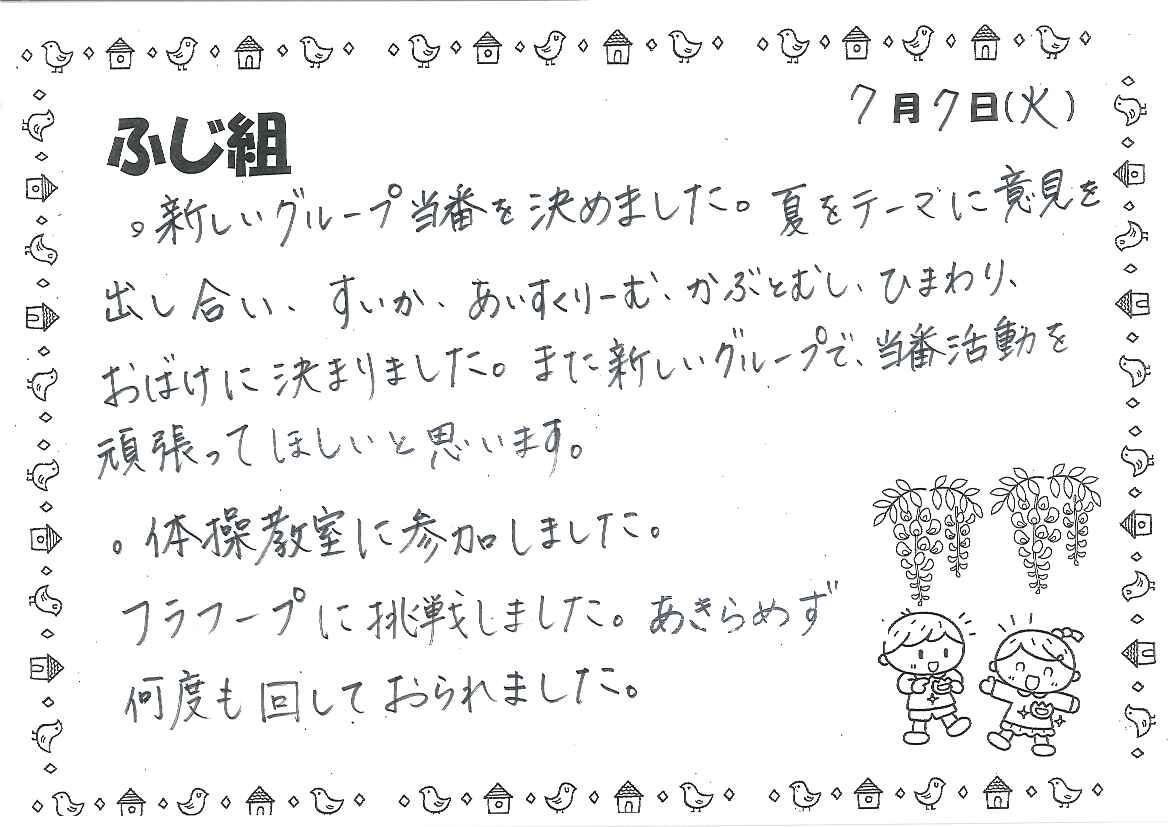 7月7日(火)
ふじ組
。新しいグループ当番を決めました。夏をテーマに意見を
出し合い、すいか、あいすくりーむ、かぶとむし、ひまわり、
おばけに決まりました。また新しいグループで、当番活動を
頑張ってほしいと思います。
。体操教室に参加しました。
フラフープに挑戦しました。あきらめず
何度も回しておられました。